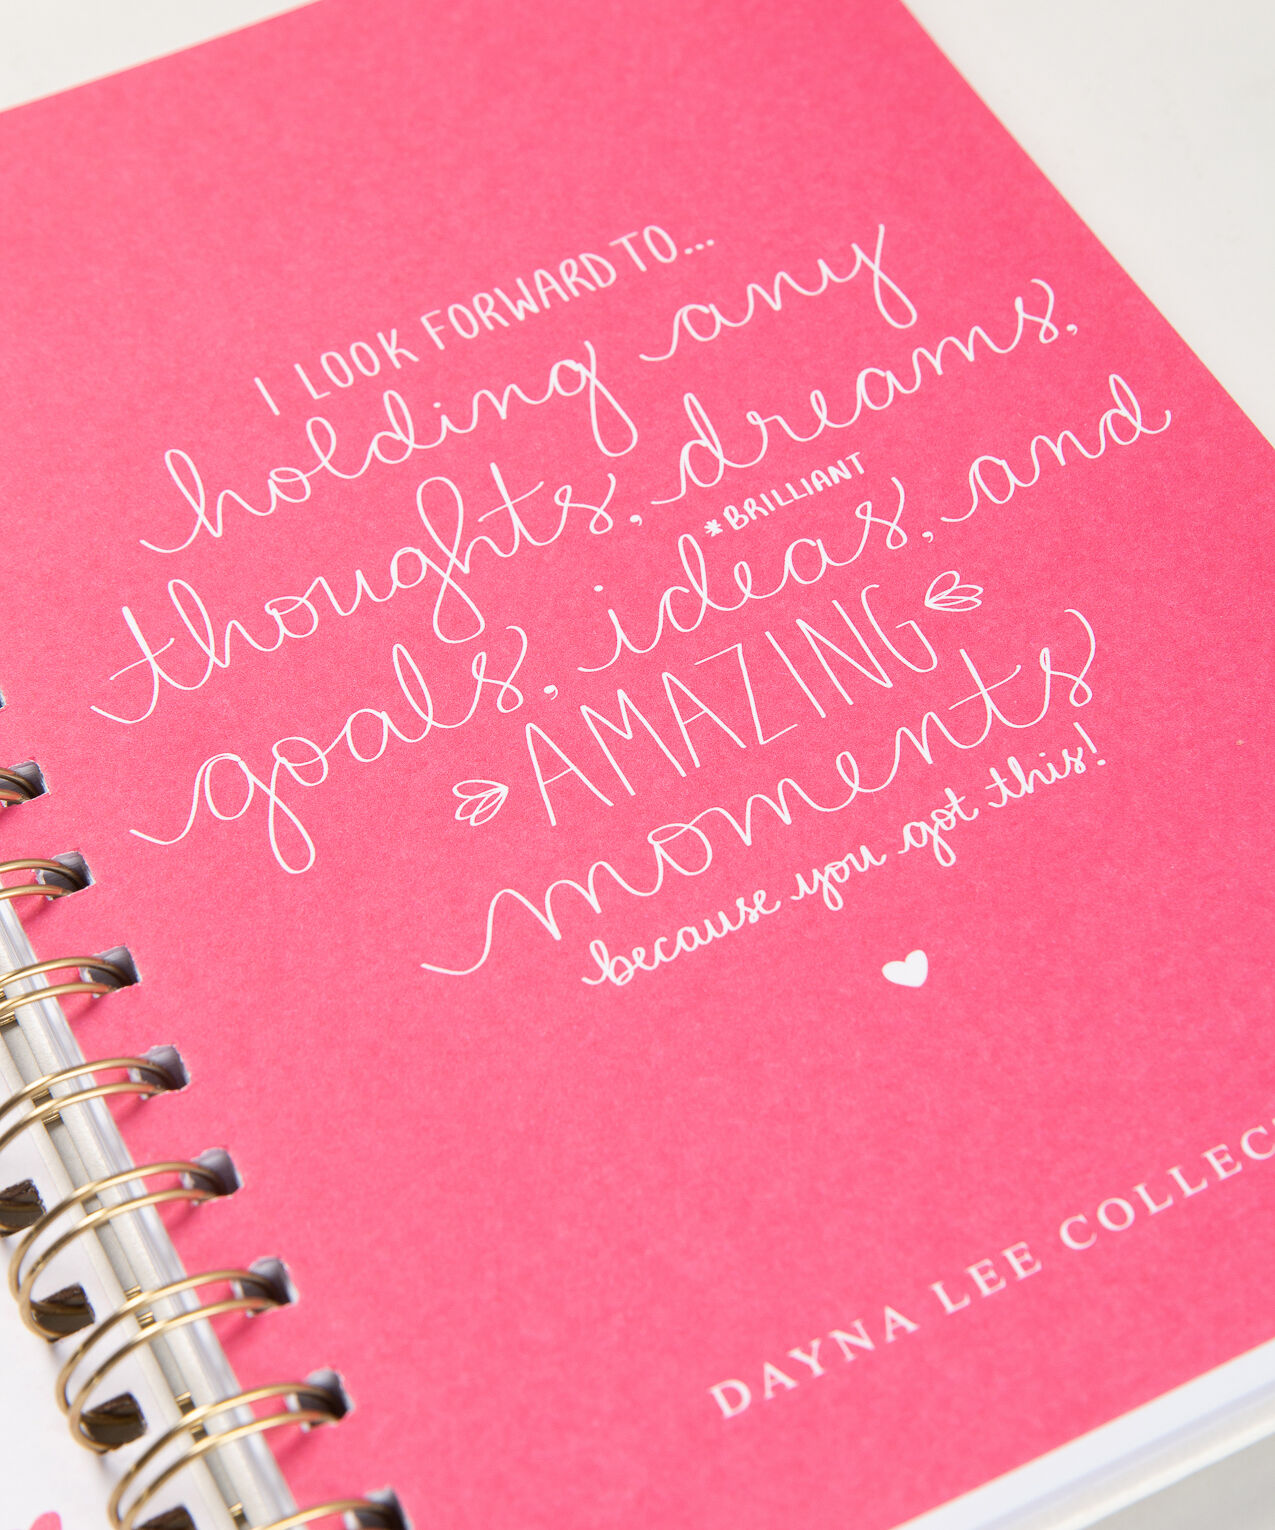 I LOOK FORWARD TO...
holding any
thoughts, dreams,
*BRILLIANT
goals, ideas, and
AMAZING
moments
because you got this!
DAYNA LEE COLLEC